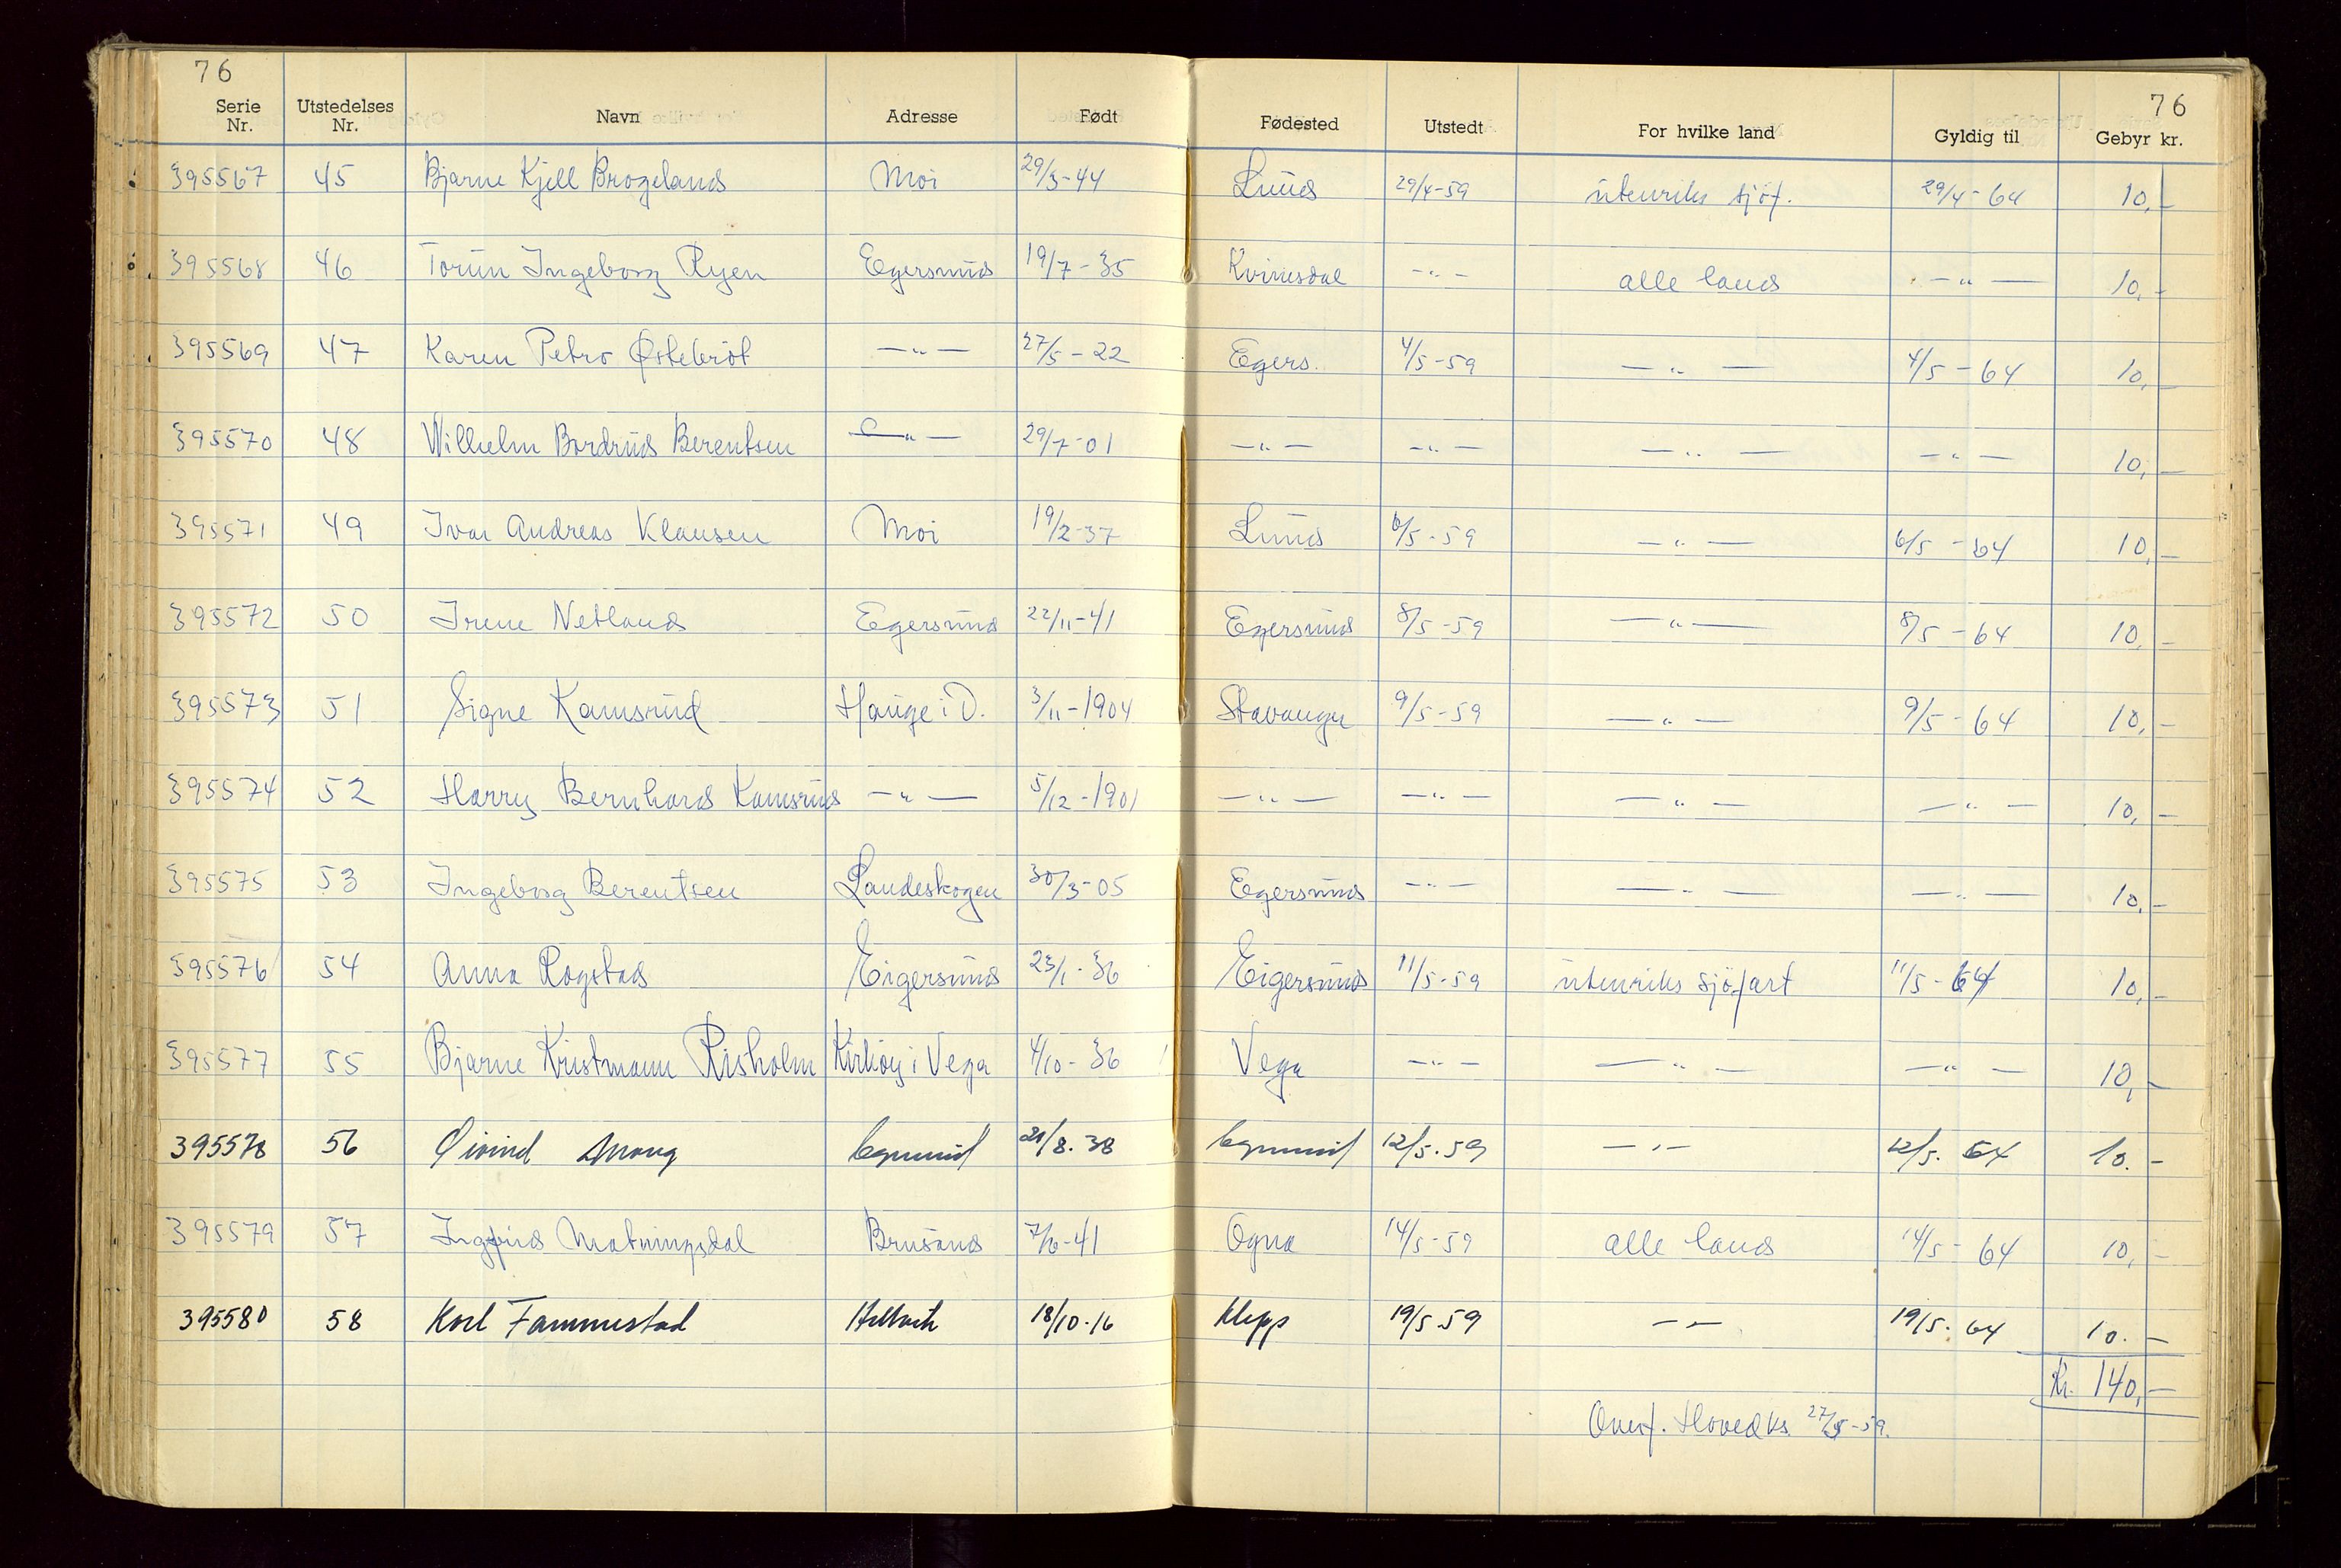 76 76
Serie Nr. Utstedelses Nr. Navn Adresse Født Fødested Utstedt For hvilke land Gyldig til Gebyr kr.
395567 45 Bjarne Kjell Brogeland Moi 29/3-44 Lund 29/4-59 utenriks sjöf. 29/4-64 10,-
395568 46 Torun Ingeborg Ryen Egersund 19/7-35 Kvinesdal -"- alle land -"- 10,-
395569 47 Karen Petra Østebröt -"- 27/5-22 Egers. 4/5-59 -"- 4/5-64 10,-
395570 48 Wilhelm Bordrud Berentsen -"- 29/7-01 -"- -"- -"- -"- 10,-
395571 49 Ivar Andreas Klausen Moi 19/2-37 Lund 6/5-59 -"- 6/5-64 10,-
395572 50 Irene Netland Egersund 22/11-41 Egersund 8/5-59 -"- 8/5-64 10,-
395573 51 Signe Kamsrud Hauge i D. 3/11-1904 Stavanger 9/5-59 -"- 9/5-64 10,-
395574 52 Harry Bernhard Kamsrud -"- 5/12-1901 -"- -"- -"- -"- 10,-
395575 53 Ingeborg Berentsen Landeskogen 30/3-05 Egersund -"- -"- -"- 10,-
395576 54 Anna Rogstad Eigersund 23/1-36 Eigersund 11/5-59 utenriks sjöfart 11/5-64 10,-
395577 55 Bjarne Kristmann Risholm Kirköy i Vega 4/10-36 Vega -"- -"- -"- 10,-
395578 56 Øivind Mong Egersund 21/8.38 Egersund 12/5.59 -"- 12/5.64 10.-
395579 57 Ingfrid Matningsdal Brusand 7/6-41 Ogna 14/5-59 alle land 14/5-64 10,-
395580 58 Karl Fammestad Hellevik 18/10.16 Klepp 19/5.59 -"- 19/5.64 10.-
Kr. 140,-
Overf. Hovedks. 27/5-59.